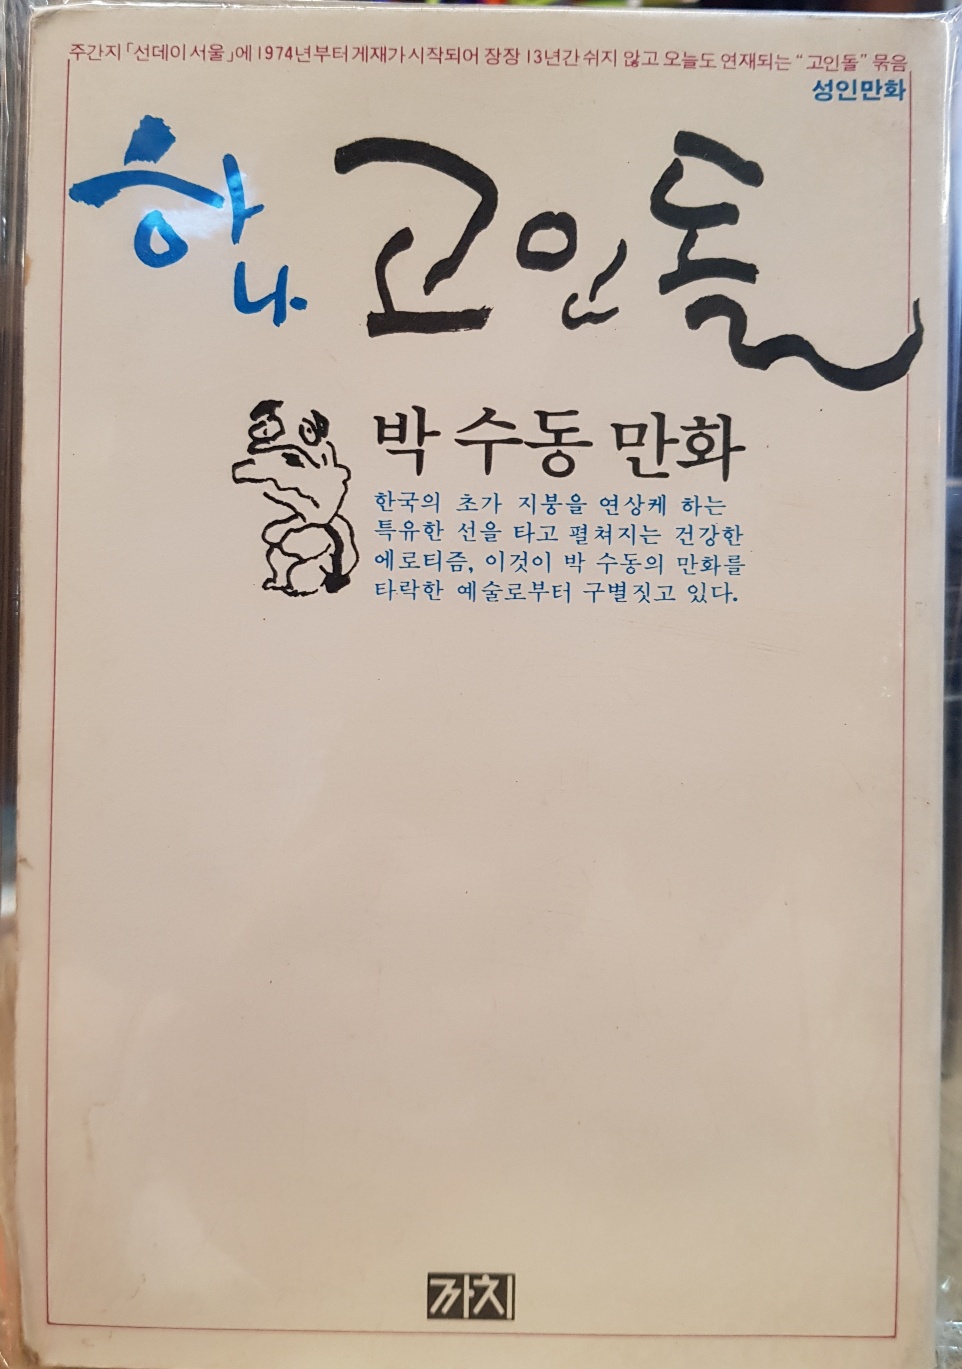 주간지「선데이 서울」에 1974년부터 게재가 시작되어 장장 13년간 쉬지 않고 오늘도 연재되는 "고인돌" 묶음
성인만화
하나 고인돌
박수동 만화
한국의 초가 지붕을 연상케 하는
특유한 선을 타고 펼쳐지는 건강한
에로티즘, 이것이 박 수동의 만화를
타락한 예술로부터 구별짓고 있다.
까치